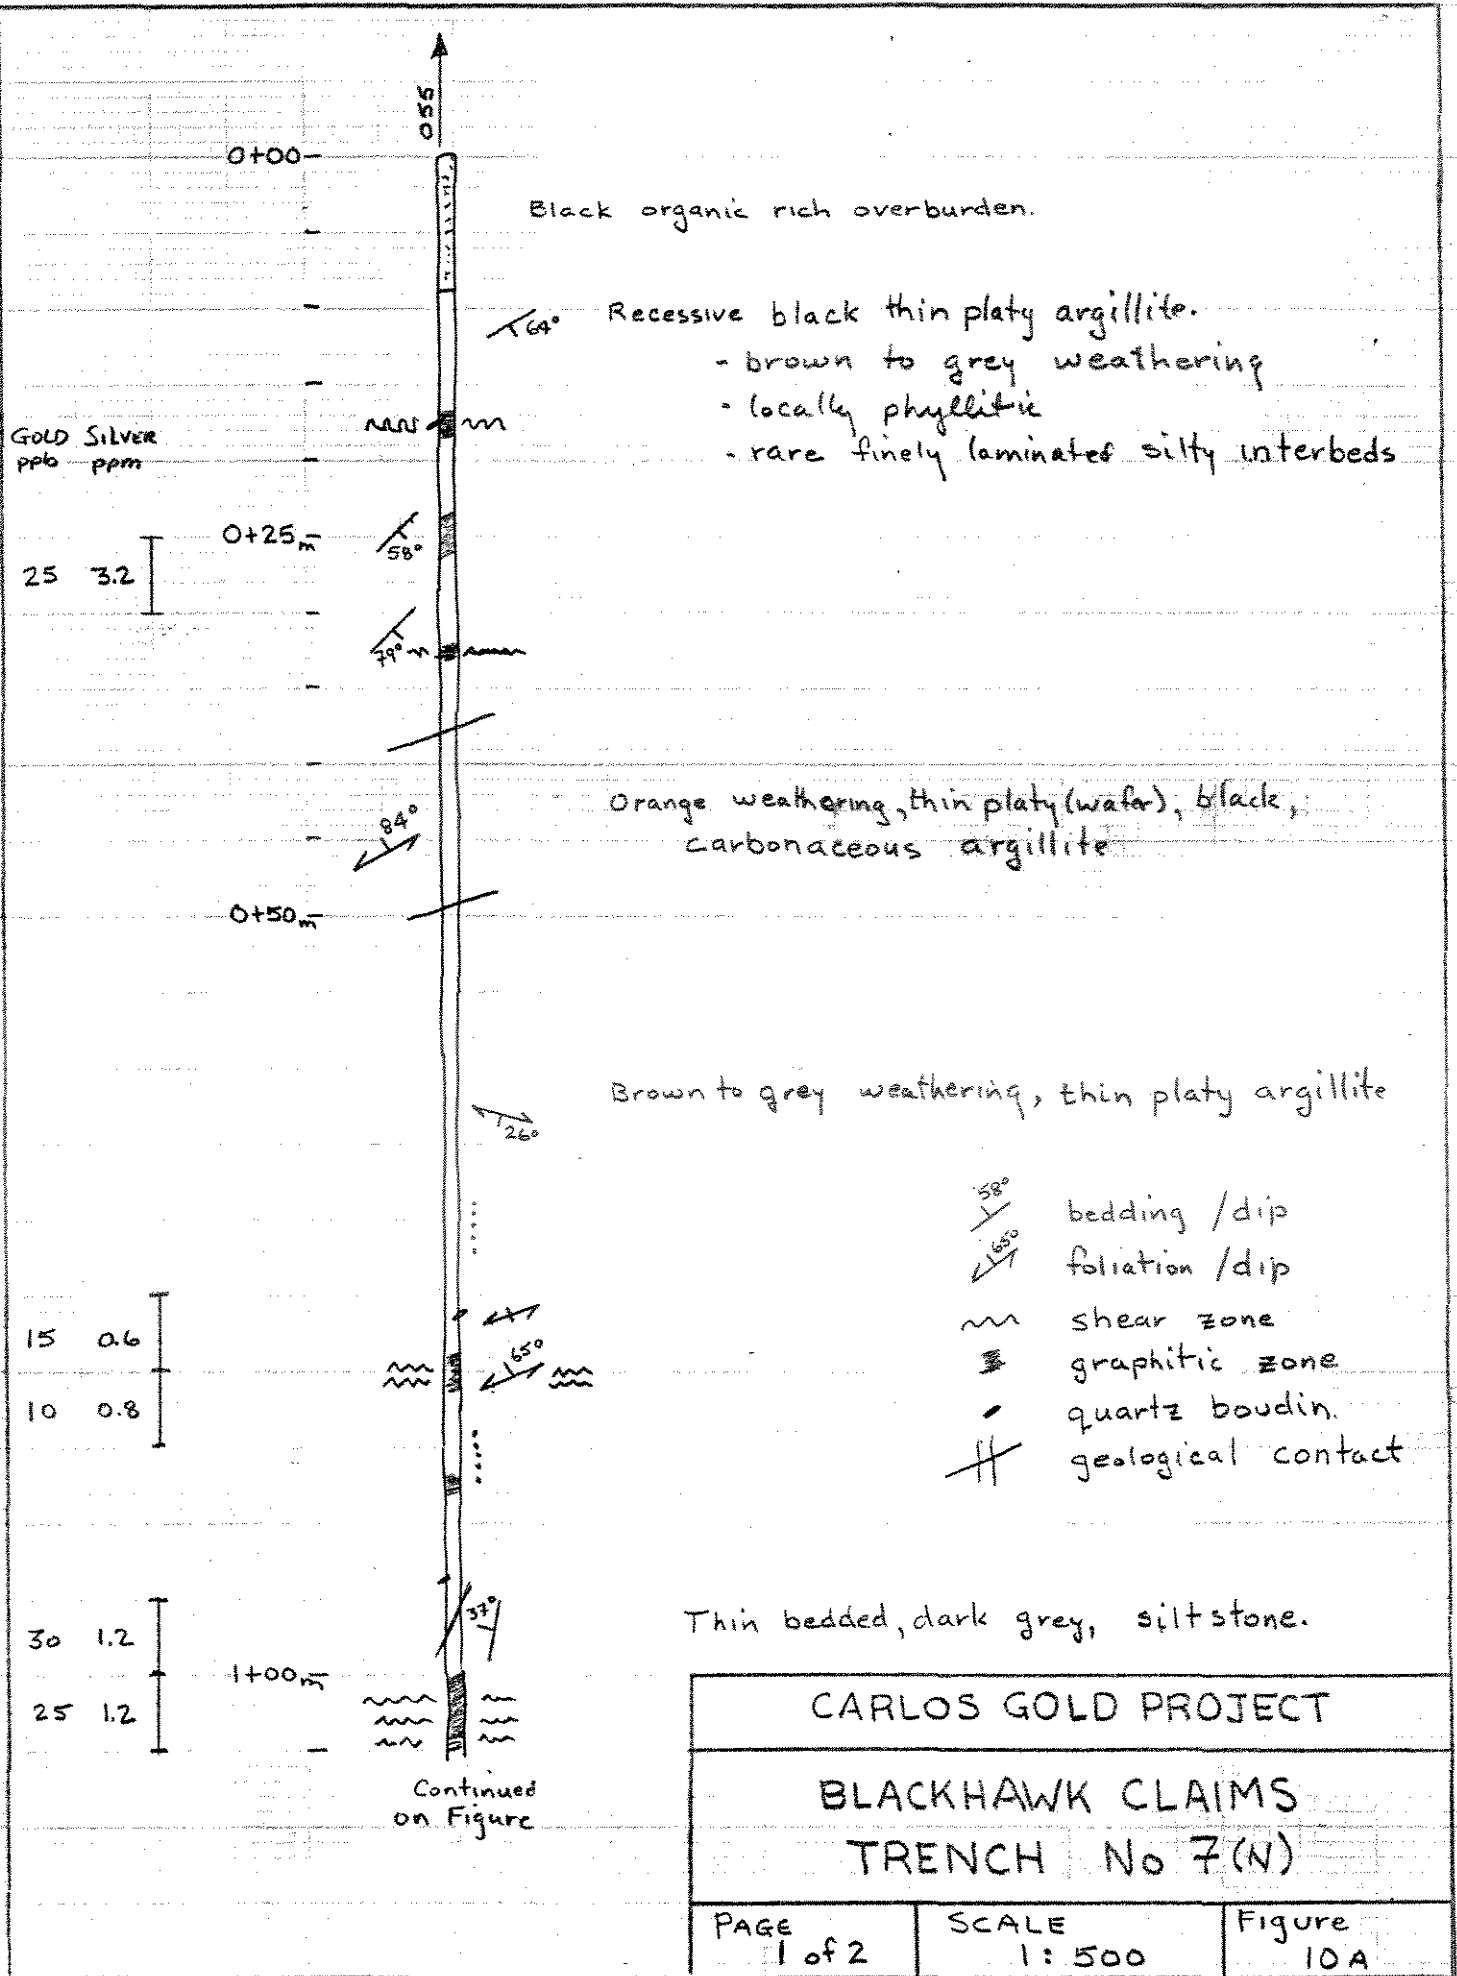 055
0+00
Black organic rich overburden.
64°
Recessive black thin platy argillite.
- brown to grey weathering
- locally phyllitic
- rare finely laminated silty interbeds
GOLD SILVER
ppb ppm
0+25m
58°
25 3.2
79°
Orange weathering, thin platy (wafer), black,
carbonaceous argillite
84°
0+50m
Brown to grey weathering, thin platy argillite
26°
58° bedding /dip
65° foliation /dip
shear zone
graphitic zone
quartz boudin.
geological contact
15 0.6
65°
10 0.8
37°
Thin bedded, dark grey, siltstone.
30 1.2
1+00m
25 1.2
Continued
on Figure
CARLOS GOLD PROJECT
BLACKHAWK CLAIMS
TRENCH No 7(N)
PAGE
1 of 2
SCALE
1: 500
Figure
10A